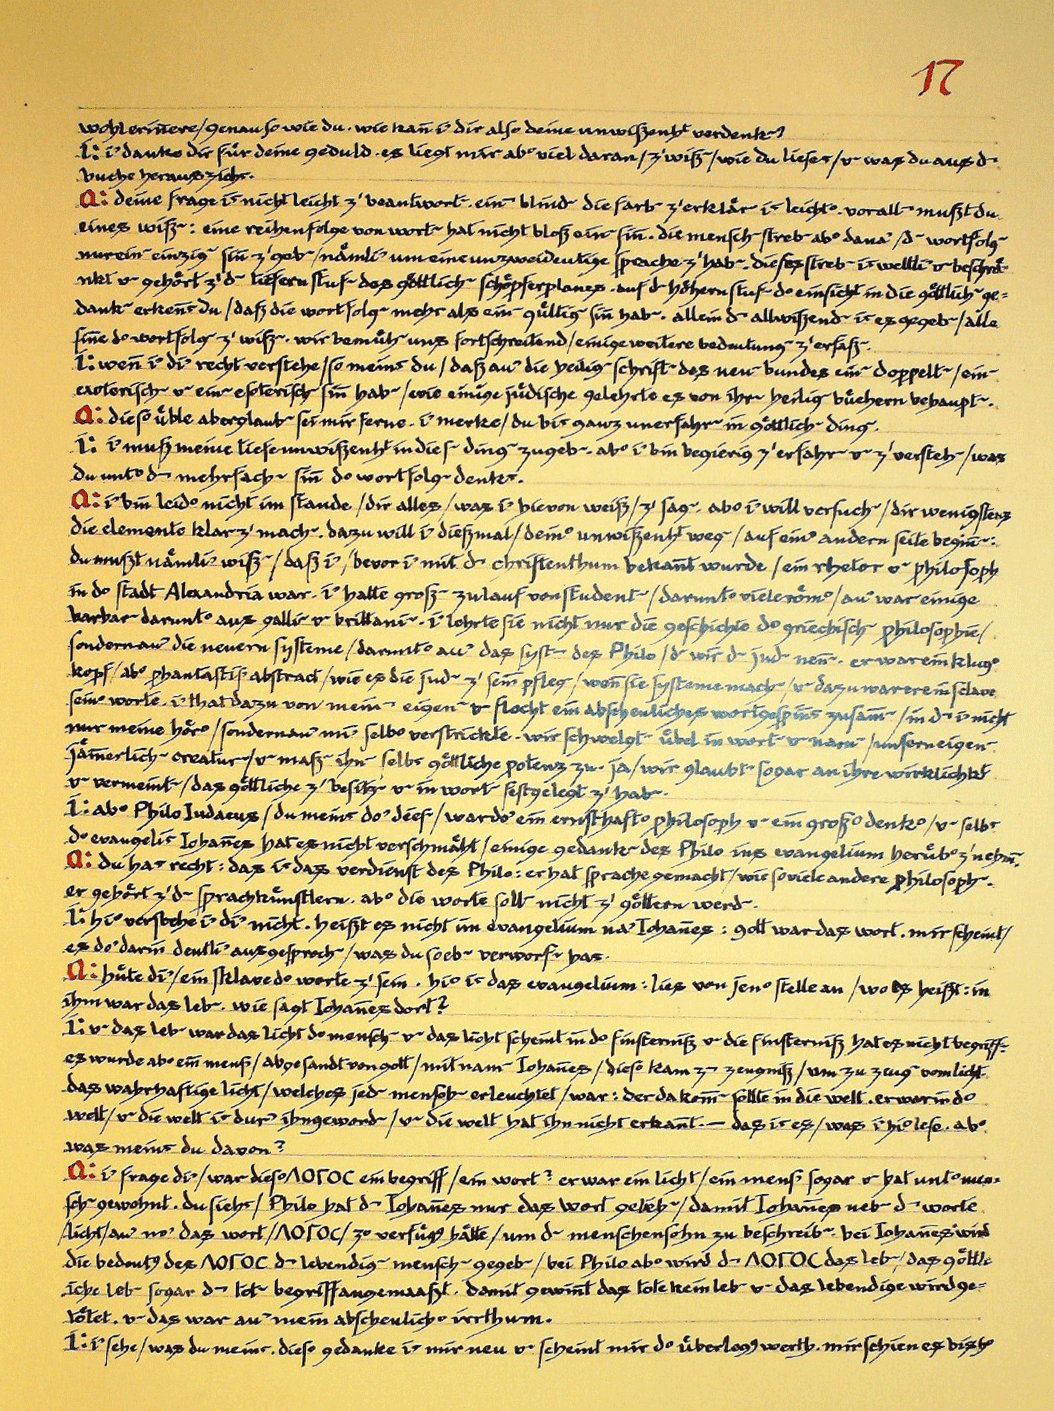 17
wohl erin̄ere/genau so wie du. wie kan̄ i' dir also deine unwißenht' verdenk¯?
I: i' danke dir für deine geduld. es liegt mir ab° viel daran/z' wiß¯/wie du liesest/v was du aus d¯
buche herausziehst.
A: deine frage is nicht leicht z' beantwort¯. ein¯ blind¯ die farb¯ z' erklär¯ is leicht°. vorall¯ mußt du
eines wiß¯: eine reihenfolge von wort¯ hat nicht bloß ein¯ sin̄. die mensch¯ streb¯ ab° dana'/d¯ wortfolg¯
nur ein¯ einzig¯ sin̄ z' geb¯/nämli' um eine unzweideutige sprache z' hab¯. dieses streb¯ is weltli' v beschrä¯
nkt v gehört z' d¯ tiefern stuf¯ des göttlich¯ schöpferplanes. auf d¯ höhern stuf¯ d° einsicht in die göttlich¯ ge=
dank¯ erkens du/daß die wortfolg¯ mehr als ein¯ gültig¯ sin̄ hab¯. allein d¯ allwißend¯ is es gegeb¯/alle
sin̄e d° wortfolg¯ z' wiß¯. wir bemüh¯ uns fortschreitend/einige weitere bedeutung¯ z' erfaß¯.
I: wen̄ i' di' recht verstehe/so meins du/daß au' die heilig¯ schrift¯ des neu¯ bundes ein¯ doppelt¯/ein¯
exoterisch¯ v ein¯ esoterisch¯ sin̄ hab¯/wie einige jüdische gelehrte es von ihr¯ heilig¯ büchern behaupt¯.
A: dieser üble aberglaub¯ sei mir ferne. i' merke/du bis ganz unerfahr¯ in göttlich¯ ding¯.
I: i' muß meine tiefe unwißenht' in dies¯ ding¯ zugeb¯. ab° i' bin begierig z' erfahr¯ v z' versteh¯/was
du unt° d¯ mehrfach¯ sin̄ d° wortfolg¯ denks.
A: i' bin leid° nicht im stande/dir alles/was i' hievon weiß/z' sag¯. ab° i' will versuch¯/dir wenigstens
die elemente klar z' mach¯. dazu will i' dießmal/dein° unwißenht' weg¯/auf ein° andern seite begin̄¯:
du mußt nämli' wiß¯/daß i'/bevor i' mit d¯ christenthum bekan̄t wurde/ein rhetor v philosoph
in d° stadt Alexandria war. i' hatte groß¯ zulauf von student¯/darunt° viele röm°/au' war¯ einige
barbar¯ darunt° aus galli¯ v brittani¯. i' lehrte sie nicht nur die geschichte d° griechisch¯ philosophie/
sondern au' die neuern systeme/darunt° au' das syst¯ des Philo/d¯ wir d¯ jud¯ nen̄¯. er war ein klug°
kopf/ab° phantastis' abstract/wie es die jud¯ z' sein pfleg¯/wen̄ sie systeme mach¯/v dazu war er ein sclave
sein° worte. i' that dazu von mein¯ eigen¯ v flocht ein abscheuliches wortgespin̄s zusam̄¯/in d¯ i' nicht
nur meine hör°/sondern au' mi' selb° verstrickte. wir schwelgt¯ übel in wort¯ v nam¯/unsern eigen¯
jäm̄erlich¯ creatur¯/v maß¯ ihn¯ selbs göttliche potenz zu. ja/wir glaubt¯ sogar an ihre wirklichkt'
v vermeint¯/das göttliche z' besitz¯ v in wort¯ festgelegt z' hab¯.
I: ab° Philo Iudaeus/du meins do' dies¯/war do' ein ernsthaft° philosoph v ein groß° denk°/v selbs
d° evangelis Iohan̄es hat es nicht verschmäht/einige gedank¯ des Philo ins evangelium herüb° z' nehm̄¯.
A: du has recht: das is das verdienst des Philo: er hat sprache gemacht/wie so viele andere philosoph¯.
er gehört z' d¯ sprachkünstlern. ab° die worte soll¯ nicht z' göttern werd¯.
I: hi° verstehe i' di' nicht. heißt es nicht im evangelium na' Iohan̄es: gott war das wort. mir scheint/
es do' darin deutli' ausgesproch¯/was du soeb¯ verworf¯ has.
A: hüte di'/ein sklave d° worte z' sein. hi° is das evangelium: lies von jen° stelle an/wo es heißt: in
ihm war das leb¯. wie sagt Iohan̄es dort?
I: v das leb¯ war das licht d° mensch¯ v das licht scheint in d° finsterniß v die finsterniß hat es nicht begriff¯.
es wurde ab° ein mens'/abgesandt von gott/mit nam¯ Iohan̄es/dies° kam z¯ zeugniß/um zu zeug¯ vom licht.
das wahrhaftige licht/welches jed¯ mensch¯ erleuchtet/war: der da kom̄¯ sollte in die welt. er war in d°
welt/v die welt is dur' ihn geword¯/v die welt hat ihn nicht erkan̄t. — das is es/was i' hi° lese. ab°
was meins du davon?
A: i' frage di'/war dies° ΛΟΓΟC ein begriff/ein wort? er war ein licht/ein mens' sogar v hat unt° men=
sch¯ gewohnt. du siehs/Philo hat d¯ Iohan̄es nur das wort gelieh¯/damit Iohan̄es neb¯ d¯ worte
licht/au' no' das wort/ΛΟΓΟC/zo verfüg⁹ hätte/um d¯ menschensohn zu beschreib¯. bei Iohan̄es wird
die bedeut⁹ des ΛΟΓΟC d¯ lebendig¯ mensch¯ gegeb¯/bei Philo ab° wird d¯ ΛΟΓΟC das leb¯/das göttl=
iche leb¯ sogar d¯ tot¯ begriff angemaaßt. damit gewin̄t das tote kein leb¯ v das lebendige wird ge=
tötet. v das war au' mein abscheulich° irrthum.
I: i' sehe/was du meins. dies° gedanke is mir neu v scheint mir d° überleg⁹ werth. mir schien es bish°